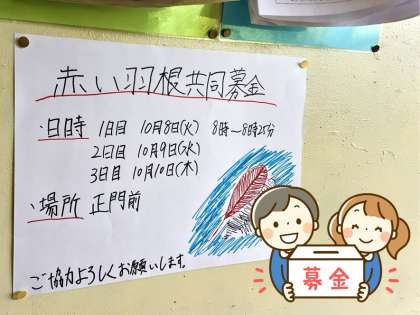 赤い羽根共同募金
・日時 1日目 10月8日(火) 8時〜8時25分
2日目 10月9日(水)
3日目 10月10日(木)
・場所 正門前
ご協力よろしくお願いします。
募金